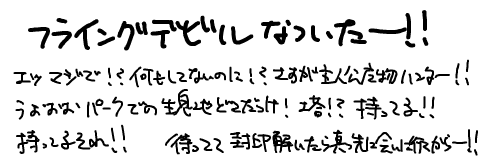 フライングデビル なついたー!!
エッ マジで!? 何もしてないのに!? さすが主人公 魔物ハンター!!
うぉおお パークでの生息地どこだろ! 塔!? 持ってる!!
持ってるそれ!! 待ってて 封印解いたら真っ先に会いに行くからー!!